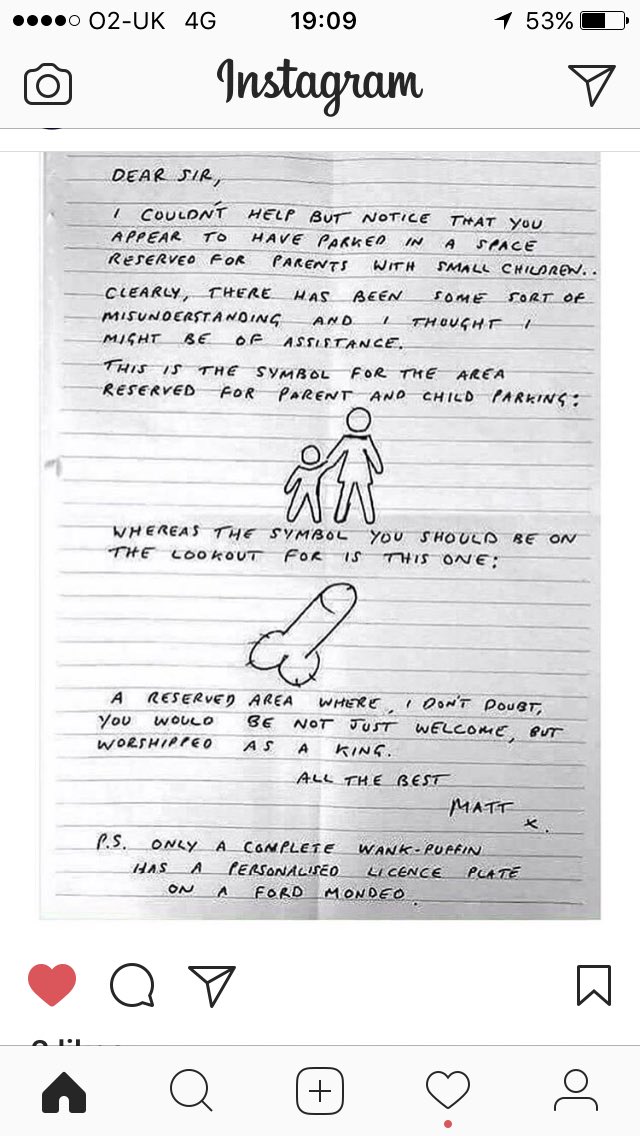 O2-UK 4G 19:09 53%
Instagram
DEAR SIR,
I COULDN'T HELP BUT NOTICE THAT YOU
APPEAR TO HAVE PARKED IN A SPACE
RESERVED FOR PARENTS WITH SMALL CHILDREN..
CLEARLY, THERE HAS BEEN SOME SORT OF
MISUNDERSTANDING AND I THOUGHT I
MIGHT BE OF ASSISTANCE.
THIS IS THE SYMBOL FOR THE AREA
RESERVED FOR PARENT AND CHILD PARKING:
WHEREAS THE SYMBOL YOU SHOULD BE ON
THE LOOKOUT FOR IS THIS ONE:
A RESERVED AREA WHERE, I DON'T DOUBT,
YOU WOULD BE NOT JUST WELCOME, BUT
WORSHIPPED AS A KING.
ALL THE BEST
MATT
x.
P.S. ONLY A COMPLETE WANK-PUFFIN
HAS A PERSONALISED LICENCE PLATE
ON A FORD MONDEO.